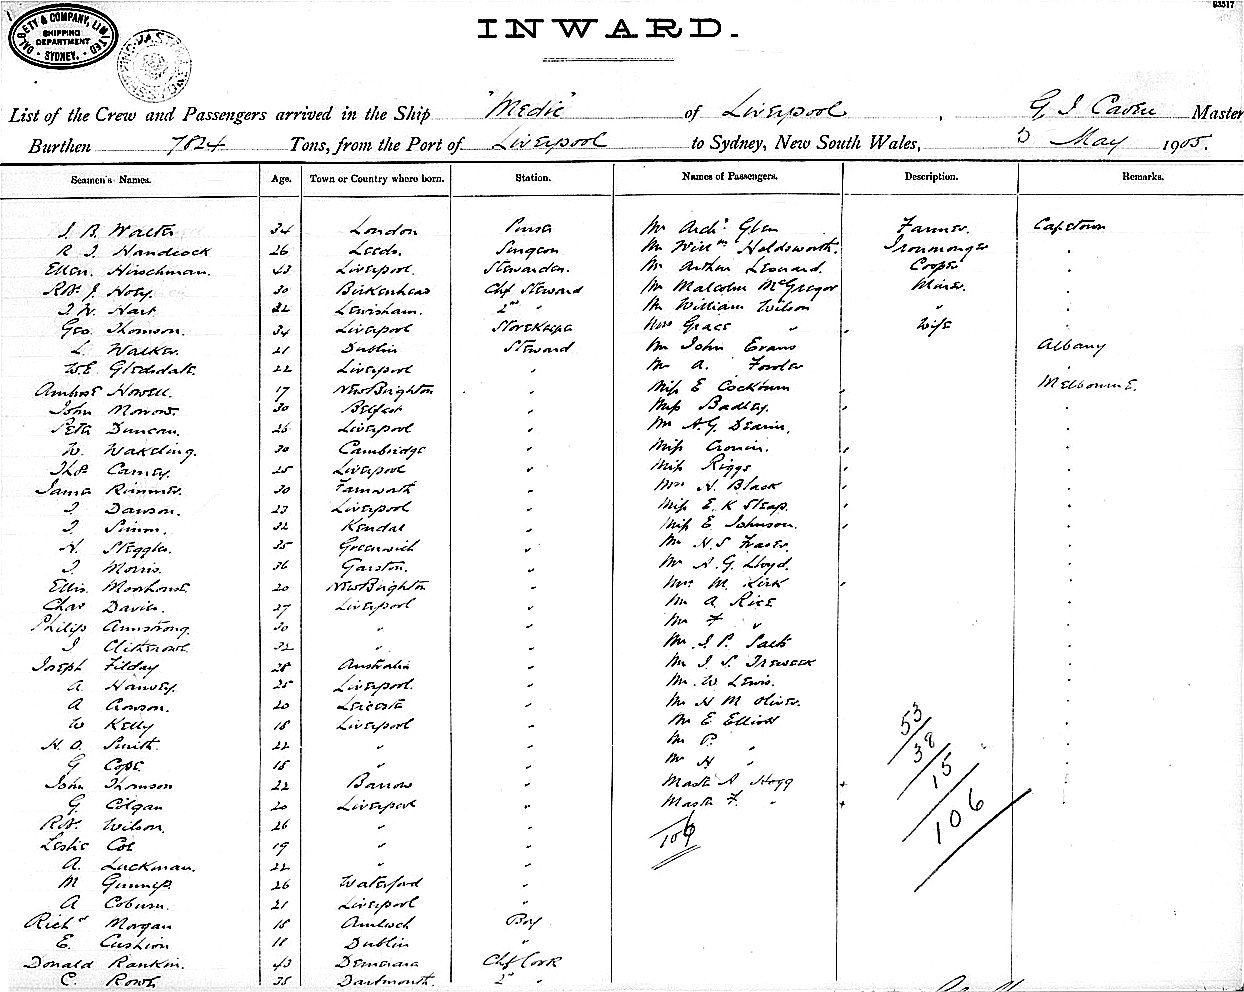 93517
DALGETY & COMPANY, LIMITED
SHIPPING
DEPARTMENT
SYDNEY.
INWARD.
List of the Crew and Passengers arrived in the Ship "Medic" of Liverpool, Master
Burthen 7824 Tons, from the Port of Liverpool to Sydney, New South Wales, May 1905.
Seamen's Names. Age. Town or Country where born. Station. Names of Passengers. Description. Remarks.
34 London Purser Mr Archd Glen Farmer Capetown
26 Leeds. Surgeon Mr Willm Holdsworth. Ironmonger "
Ellen Hirschman. 43 Liverpool. Stewardess. Mr Arthur Leonard. Cooper "
Robt J. Hoey. 30 Birkenhead Chf Steward Mr Malcolm McGregor Miner "
Hart 22 Lewisham. 2nd " Mr William Wilson " "
Geo. Thomson. 34 Liverpool Storekeeper Mrs Grace " Wife "
L. Walker. 21 Dublin Steward Mr John Evans Albany
W.E. Gledsdale 22 Liverpool " Mr A. Fowler
Ambrose Howell. 17 New Brighton " Miss E Cockburn Melbourne.
John Morrow. 30 Belfast " Miss Badley. "
Peter Duncan. 26 Liverpool " Mr A.G. Dearin. "
W. Wakeling. 30 Cambridge " Miss Cronin. "
Thos Carney. 25 Liverpool " Miss Riggs "
James Rimmer. 30 Farnworth " Mrs H. Black "
Dawson. 23 Liverpool " Miss E. K "
32 Kendal " Miss E. Johnson. "
H. Steggles. 35 Greenwich " Mr H.S. Fraser. "
Morris. 36 Garston. " Mr A. G. Lloyd. "
Ellis Moorhouse. 20 New Brighton " Mrs M. Kirk "
Chas Davies. 27 Liverpool " Mr A. Rice "
Philip Armstrong. 30 " " Mr F " "
32 " " Mr J. P. Salt "
Joseph Filday 28 Australia " Mr J. S. Treweek "
A. Harvey. 25 Liverpool. " Mr W Lewis. "
A Crowson. 20 Leicester " Mr H M Oliver. "
W Kelly 18 Liverpool " Mr E Elliott "
H. O. Smith. 22 " " Mr P. " "
G Cope. 18 " " Mr H " "
John Thomson 22 Barrow " Master A Hogg "
G. Colgan 20 Liverpool " Master F. " "
53
38
15
106
106
Robt. Wilson. 26 " "
Leslie Coe 19 " "
A. Luckman. 22 " "
M Guiness. 26 Waterford "
A Coburn. 21 Liverpool "
Richd Morgan 18 Amlwch Boy
E. Cushion 18 Dublin "
Donald Rankin. 43 Demerara Chf Cook
C. Rowe 35 Dartmouth. 2nd "